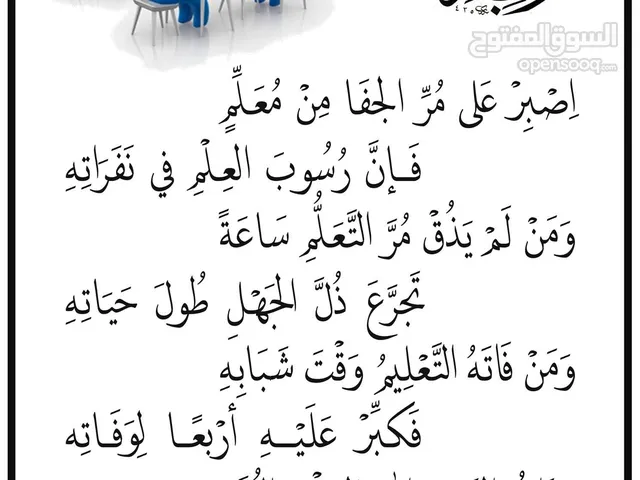 السوق المفتوح
opensooq.com
اِصْبِرْ عَلَى مُرِّ الجَفَا مِنْ مُعَلِّمٍ
فَإِنَّ رُسُوبَ العِلْمِ فِي نَفَرَاتِهِ
وَمَنْ لَمْ يَذُقْ مُرَّ التَّعَلُّمِ سَاعَةً
تَجَرَّعَ ذُلَّ الجَهْلِ طُولَ حَيَاتِهِ
وَمَنْ فَاتَهُ التَّعْلِيمُ وَقْتَ شَبَابِهِ
فَكَبِّرْ عَلَيْهِ أَرْبَعًا لِوَفَاتِهِ